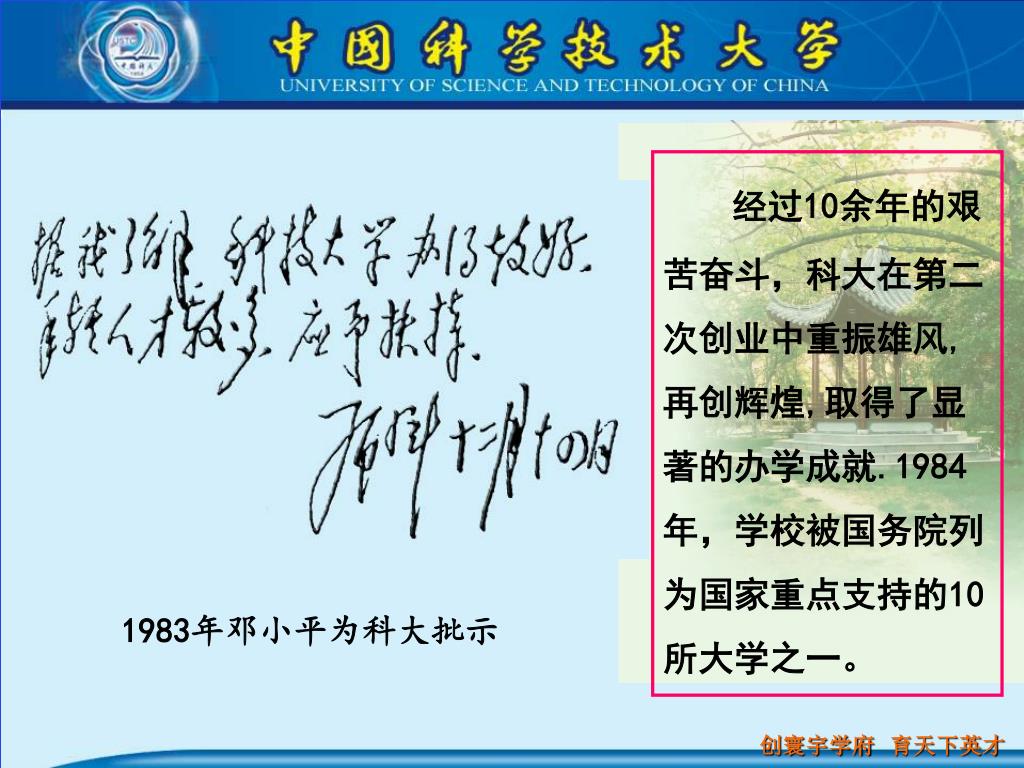 USTC
中国科大
1958
中国科学技术大学
UNIVERSITY OF SCIENCE AND TECHNOLOGY OF CHINA
据我了解.科技大学办得较好.
年轻人才较多.应予扶持.
十二月十四日
1983年邓小平为科大批示
经过10余年的艰
苦奋斗，科大在第二
次创业中重振雄风,
再创辉煌,取得了显
著的办学成就.1984
年，学校被国务院列
为国家重点支持的10
所大学之一。
创寰宇学府 育天下英才